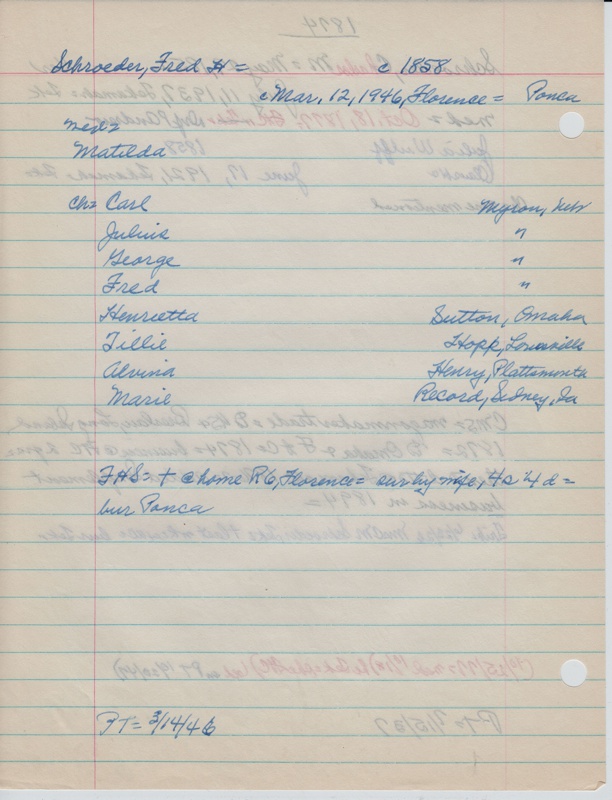 Schroeder, Fred H = c 1858
c Mar. 12, 1946, Florence = Ponca
med=
Matilda
ch= Carl Myron, Neb
Julius "
George "
Fred "
Henrietta Sutton, Omaha
Tillie Hopp, Louisville
Alvina Henry, Plattsmouth
Marie Record, Sidney, Ia
FHS = + @ home R6, Florence = sur by wife, 4s 4d =
bur Ponca
PT = 3/14/46